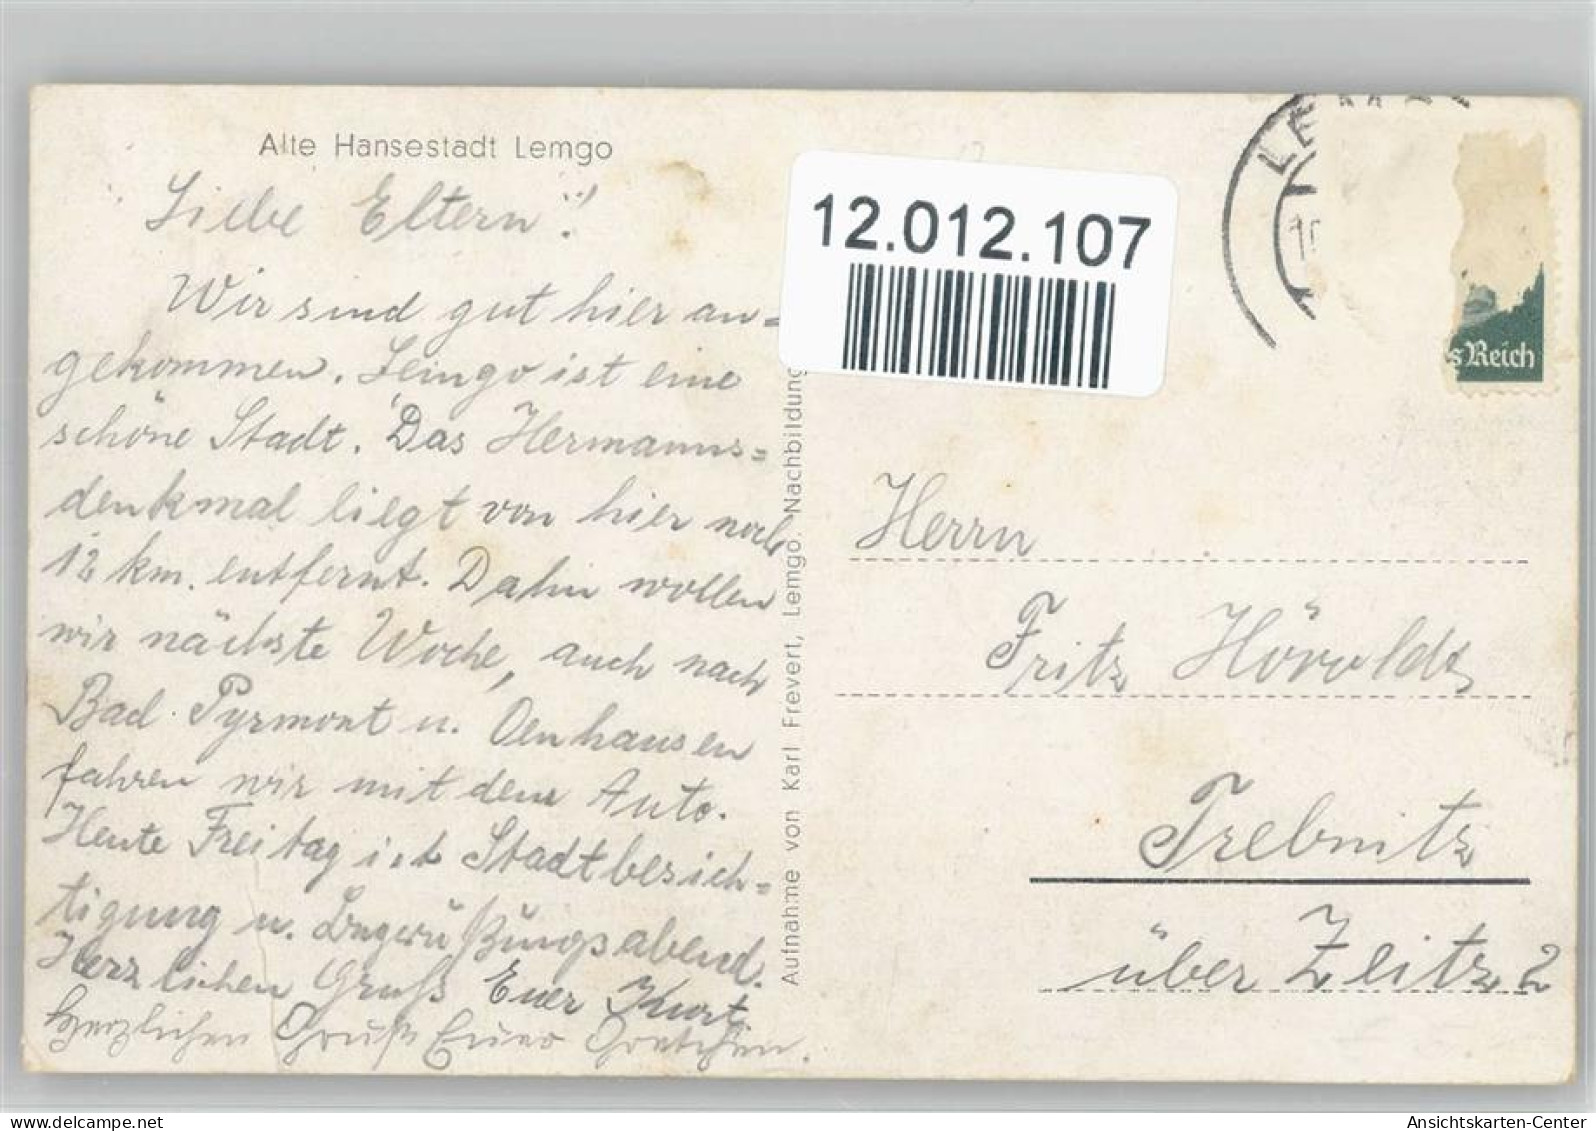 Alte Hansestadt Lemgo
Liebe Eltern!
Wir sind gut hier an=
gekommen. Lemgo ist eine
schöne Stadt. Das Hermanns=
denkmal liegt von hier noch
12 km. entfernt. Dahin wollen
wir nächste Woche, auch nach
Bad Pyrmont u. Oenhausen
fahren wir mit dem Auto.
Heute Freitag ist Stadtbesich=
tigung u. Begrüßungsabend.
Herzlichen Gruß Euer Kurt
Herzlichen Gruß Euer Gretchen.
Aufnahme von Karl Frevert, Lemgo. Nachbildung
12.012.107
s Reich
Herrn
Fritz
Trebnitz
über Zeitz 2
delcampe.net
Ansichtskarten-Center